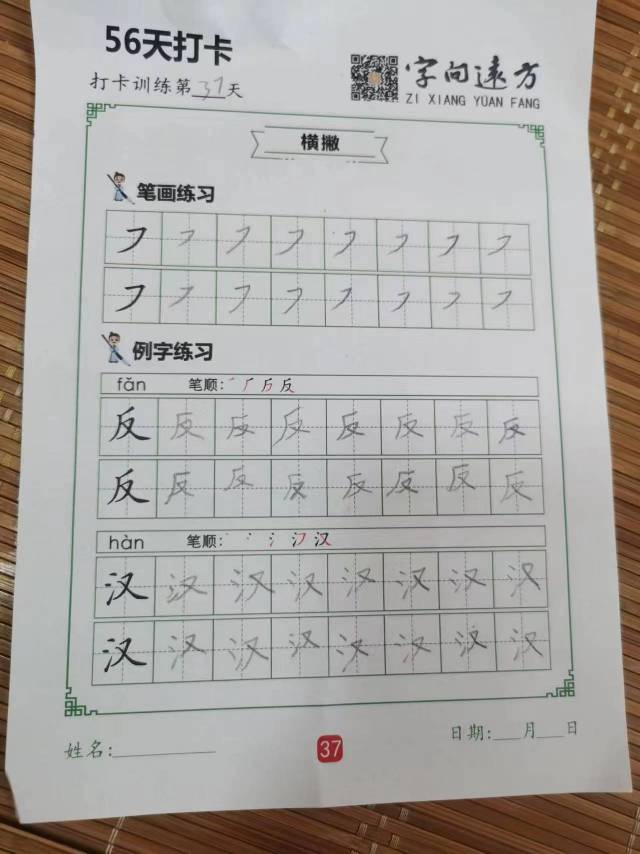 56天打卡
打卡训练第37天
字向远方
ZI XIANG YUAN FANG
横撇
笔画练习
㇇ ㇇ ㇇ ㇇ ㇇ ㇇ ㇇ ㇇
㇇ ㇇ ㇇ ㇇ ㇇ ㇇ ㇇ ㇇
例字练习
fǎn 笔顺: 反
反 反 反 反 反 反 反 反
反 反 反 反 反 反 反 反
hàn 笔顺: 汉
汉 汉 汉 汉 汉 汉 汉 汉
汉 汉 汉 汉 汉 汉 汉 汉
姓名:
37
日期: 月 日